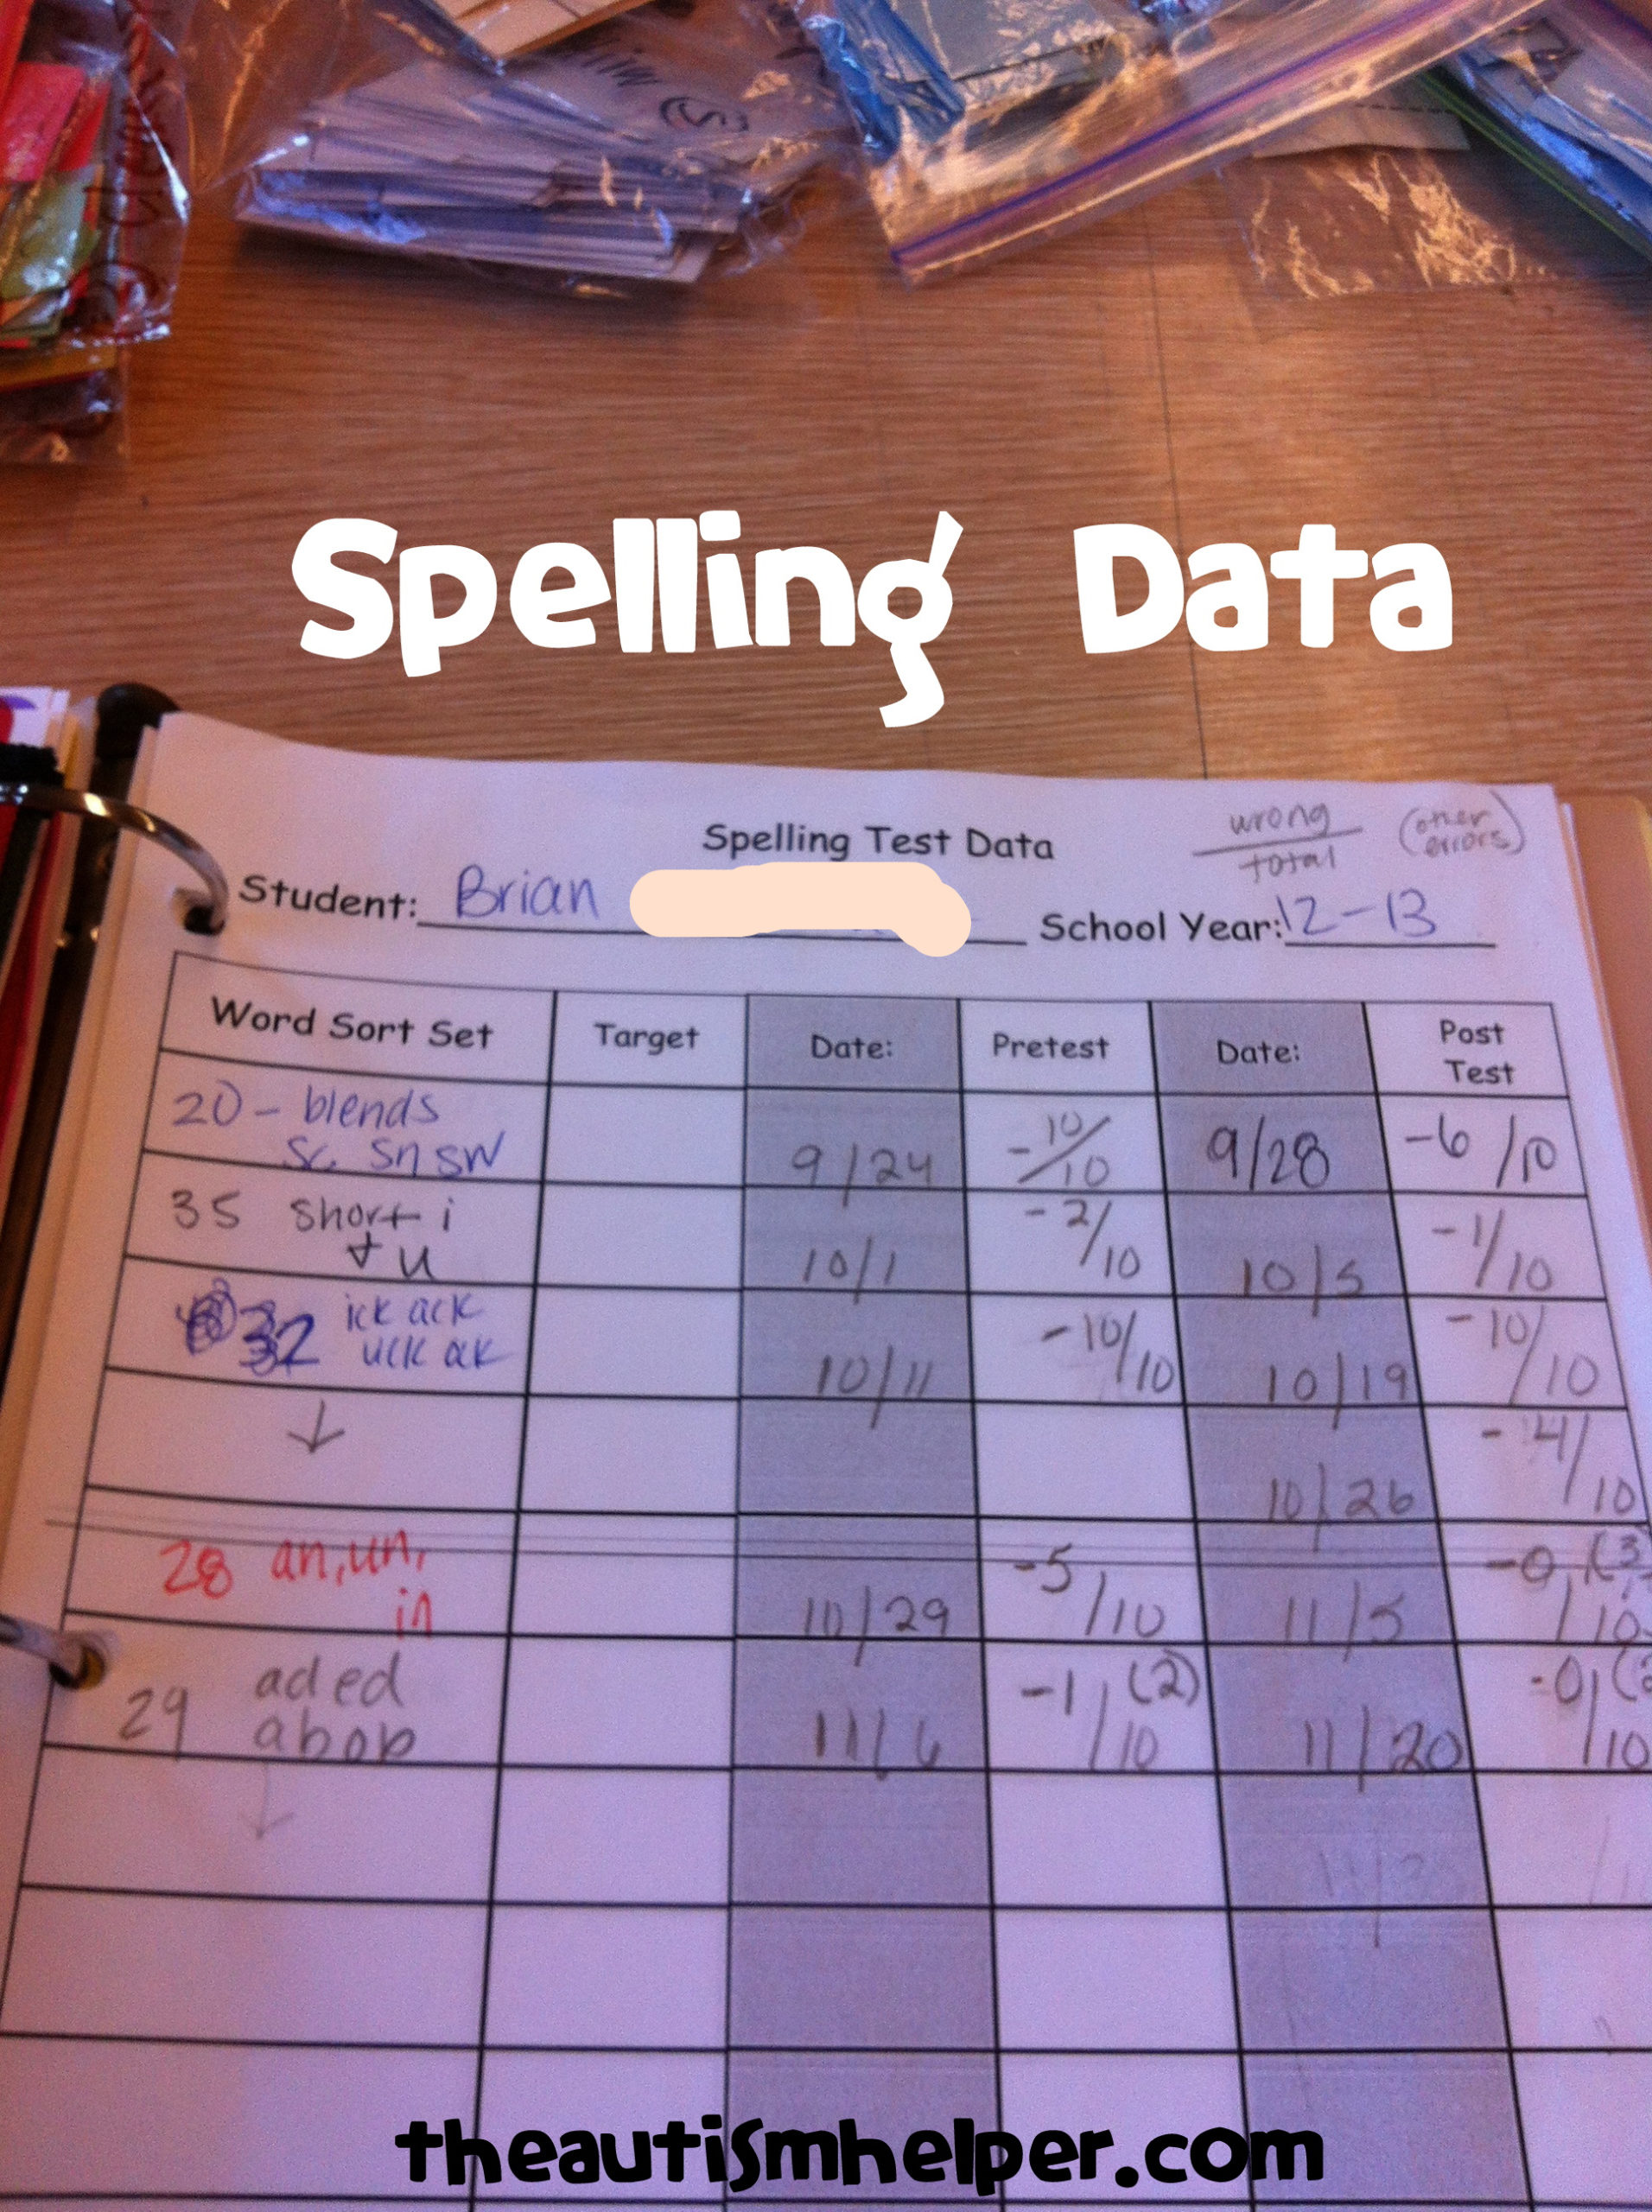 Spelling Data
wrong (other
total errors)
Spelling Test Data
Student: Brian School Year: 12-13
Word Sort Set Target Date: Pretest Date: Post Test
20 - blends
sc sn sw 9/24 -10/10 9/28 -6/10
35 short i
+ u 10/1 -2/10 10/5 -1/10
32 ick ack
uck ock 10/11 -10/10 10/19 -10/10
↓ 10/26 -4/10
28 an, un,
in 10/29 -5/10 11/5 -0/10 (3
29 ad ed
ab ob 11/6 -1/10 (2) 11/20 -0/10
↓
theautismhelper.com